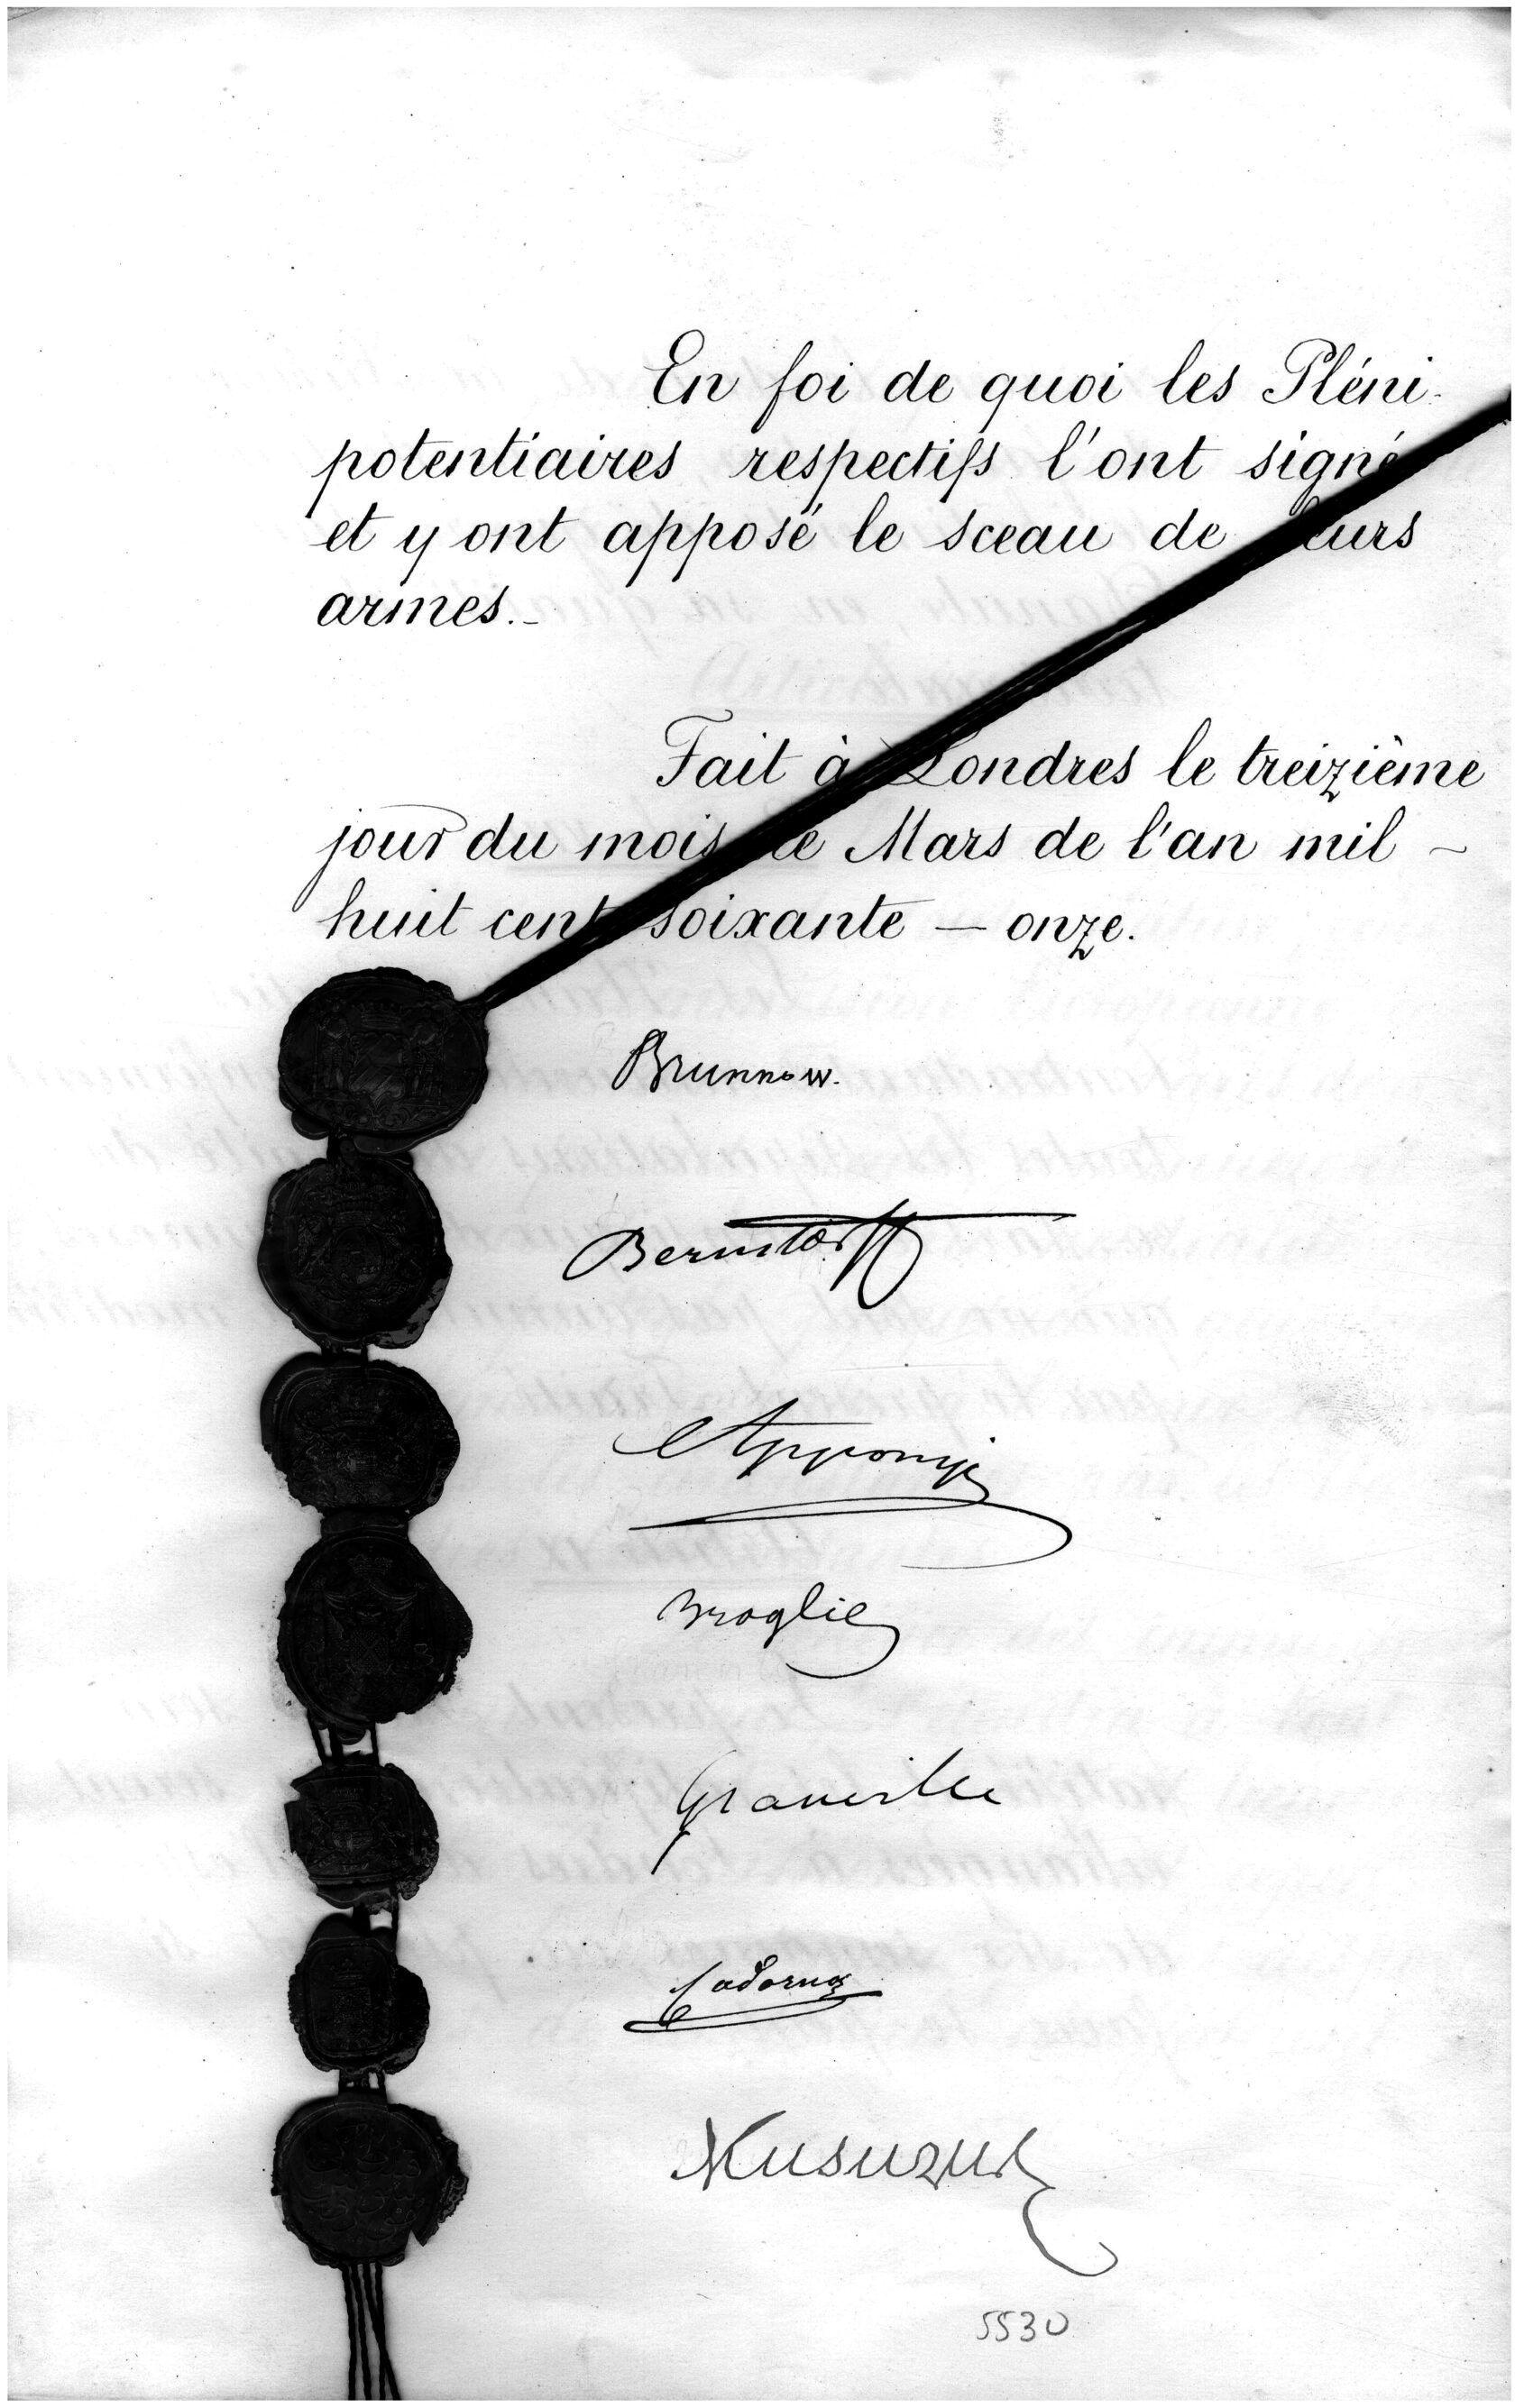 En foi de quoi les Pléni-
potentiaires respectifs l'ont signé
et y ont apposé le sceau de leurs
armes.-
Fait à Londres le treizième
jour du mois de Mars de l'an mil -
huit cent soixante - onze.
Brunnow.
Bernstorff
Apponyi
Broglie
Granville
Cadorna
Musurus
5530